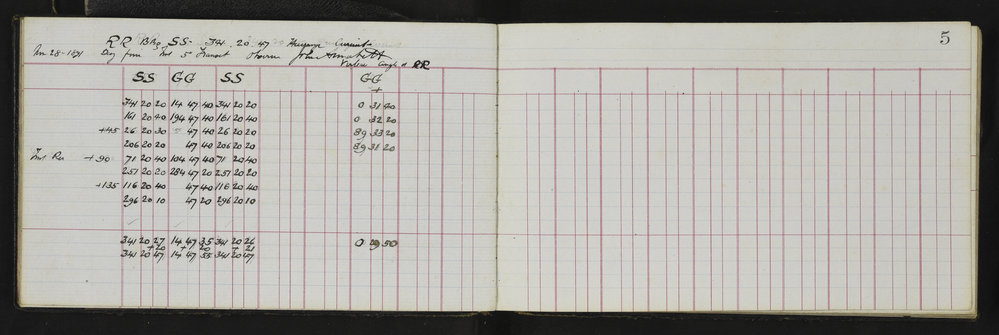 5
RR Brg SS- 341 20 47
28-1891 Day from 5" Transit Observer John
Vertical Angle at RR
SS GG SS GG
+
341 20 20 14 47 40 341 20 20 0 31 40
161 20 40 194 47 40 161 20 40 0 32 20
+45 26 20 30 47 40 26 20 20 89 33 20
206 20 20 47 40 206 20 20 89 31 20
+90 71 20 40 104 47 40 71 20 40
251 20 20 284 47 20 251 20 20
+135 116 20 40 47 40 116 20 40
296 20 10 47 20 296 20 10
341 20 27 14 47 35 341 20 26 0 29 50
+20 +20 +21
341 20 47 14 47 55 341 20 47